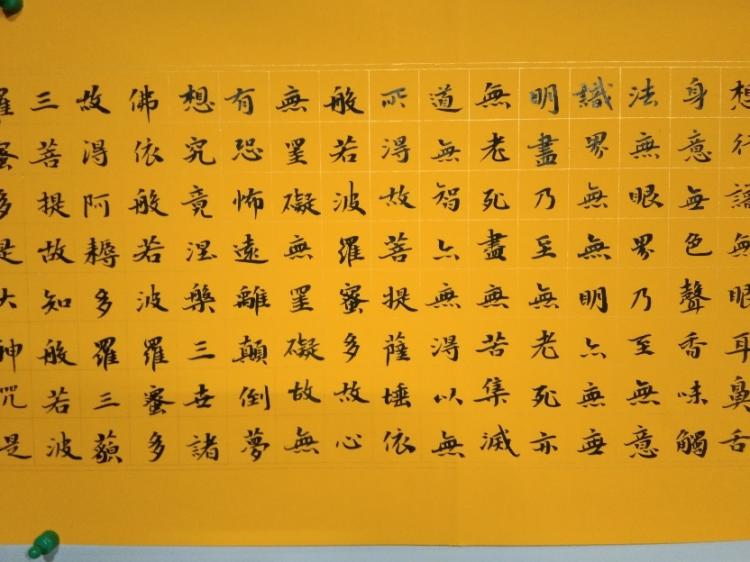 想行識無眼耳鼻舌
身意無色聲香味觸
法無眼界乃至無意
識界無無明亦無無
明盡乃至無老死亦
無老死盡無苦集滅
道無智亦無得以無
所得故菩提薩埵依
般若波羅蜜多故心
無罣礙無罣礙故無
有恐怖遠離顛倒夢
想究竟涅槃三世諸
佛依般若波羅蜜多
故得阿耨多羅三藐
三菩提故知般若波
羅蜜多是大神咒是